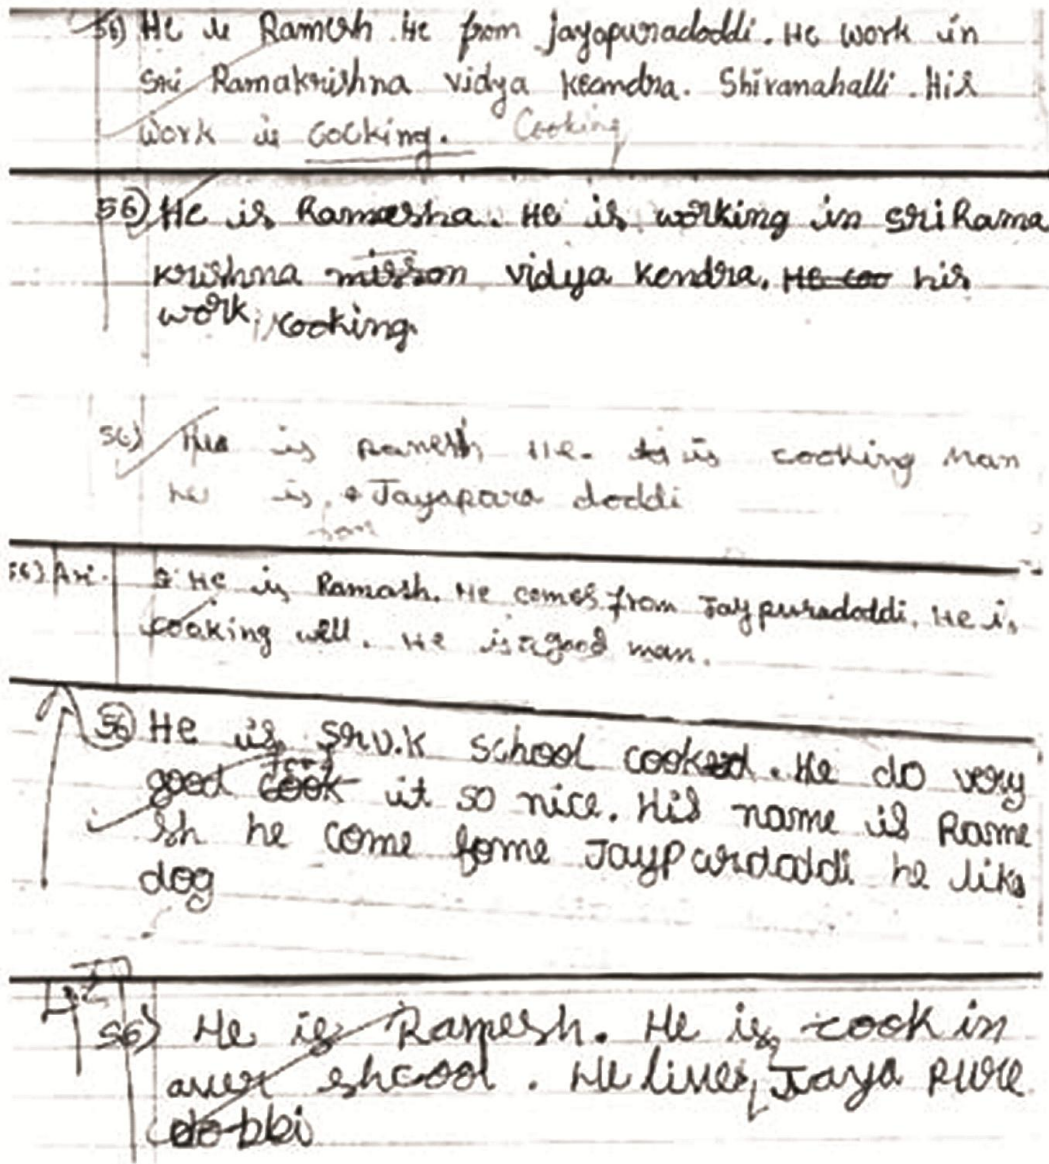 56) He is Ramesh. He from Jayapuradoddi. He work in
Sri Ramakrishna vidya Keandra. Shivanahalli. His
work is cocking. Cooking
56) He is Ramaesha. He is working in Sri Rama
krishna misson vidya Kendra. He coo his
work, cooking.
56) is Ramesh He. is cooking man
he is Jayapara doddi
from
56) Ari. He is Ramash. He comes from Jaypuradoddi. He is
cooking well. He is a good man.
56 He is S.R.V.K school cooked. He do very
food
good cook it so nice. His name is Rame
sh he come fome Jaypurdaddi he like
dog
56) He is Ramesh. He is cook in
awer shcool. He lives Jaya pure
dobbi